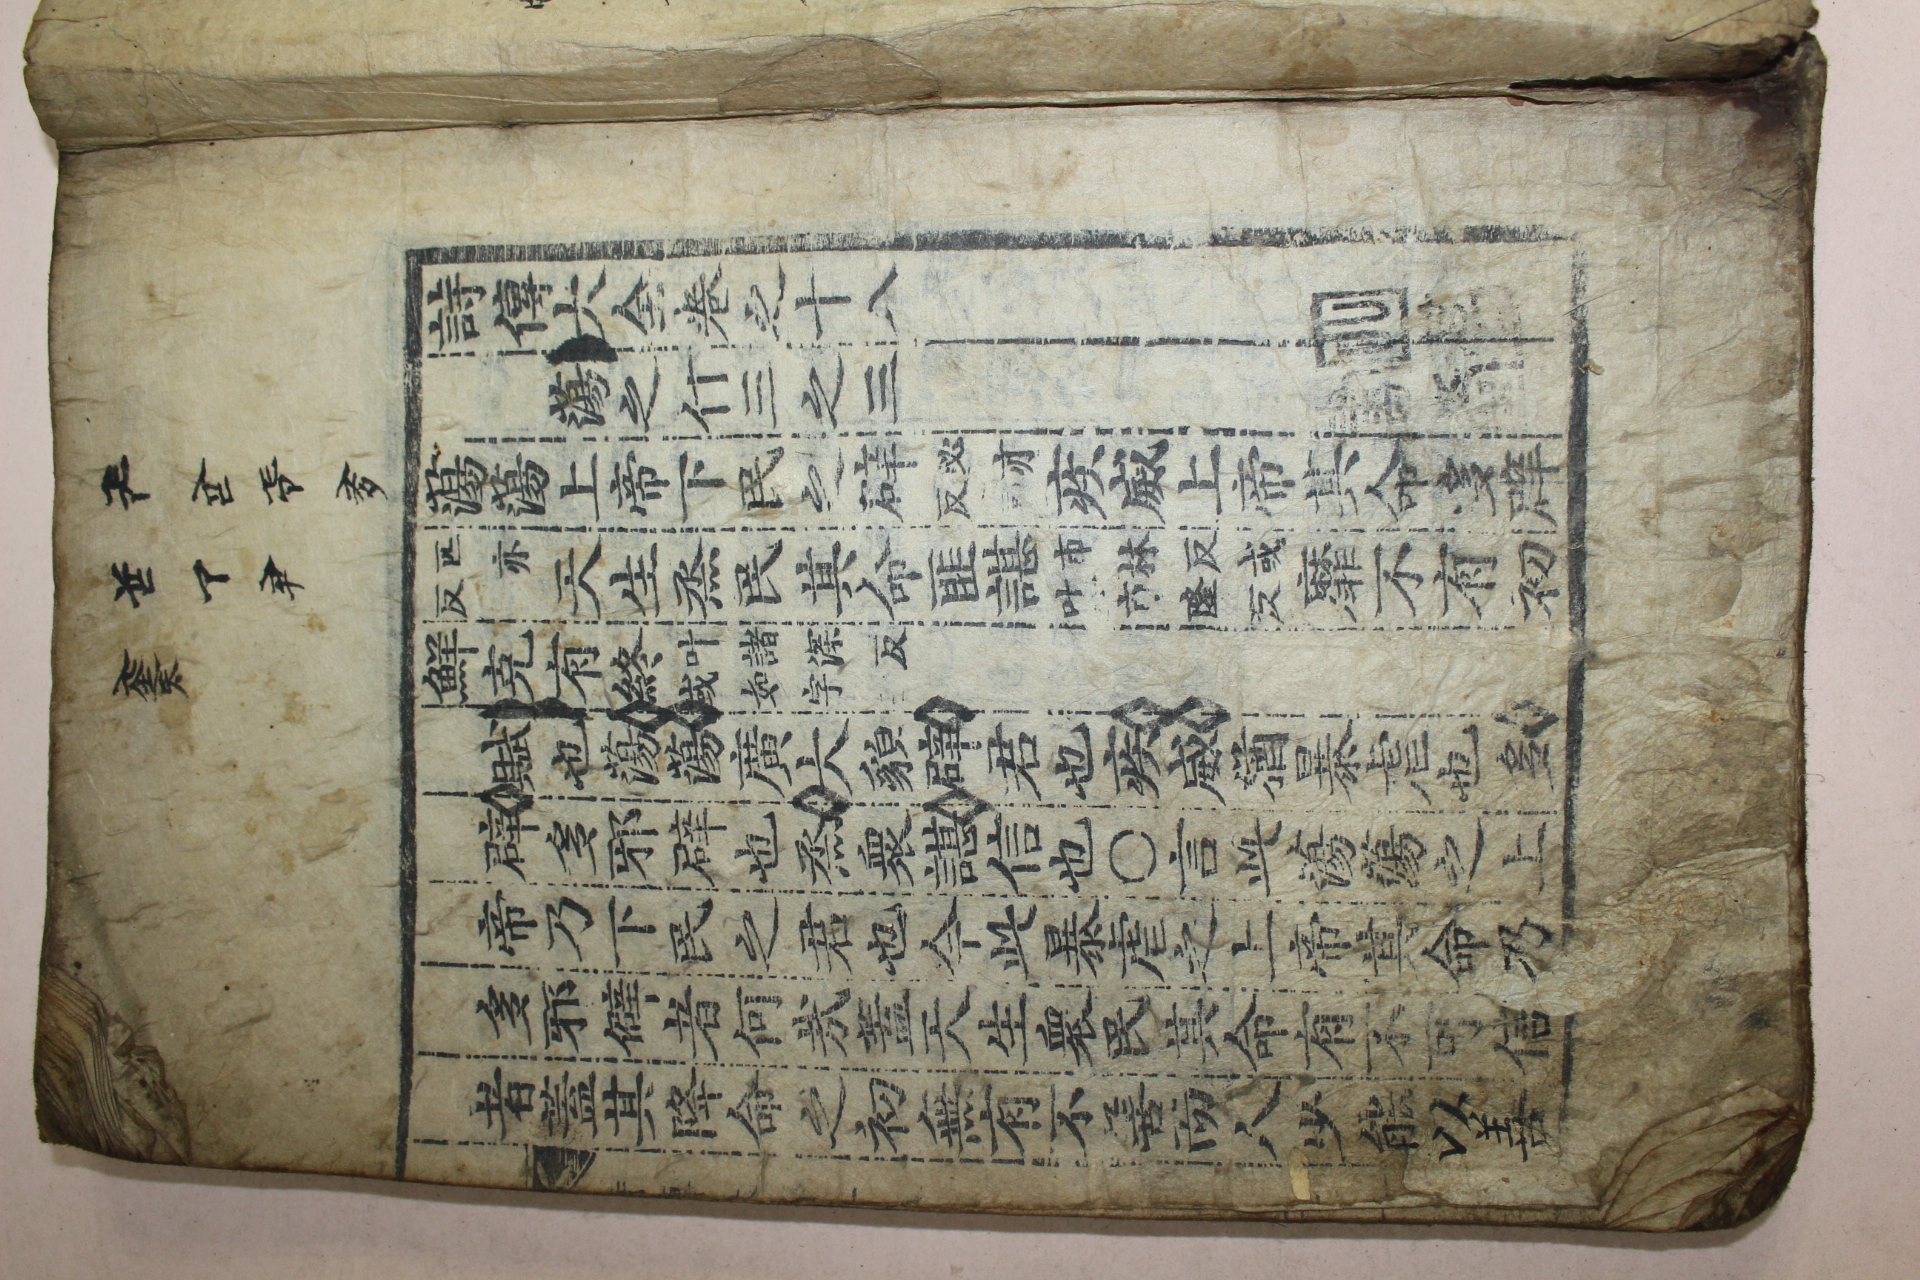 詩傳大全卷之十八
蕩之什三之三
蕩蕩上帝下民之辟必亦反疾威上帝其命多辟
匹亦反天生烝民其命匪諶叶市林反隆或反靡不有初
鮮克有終叶諸深反或如字
賦也蕩蕩廣大貌辟君也疾威猶暴虐也多
辟多邪辟也烝衆諶信也○言此蕩蕩之上
帝乃下民之君也今此暴虐之上帝其命乃
多邪僻者何哉蓋天生衆民其命有不可信
者蓋其降命之初無有不善而人少能以善